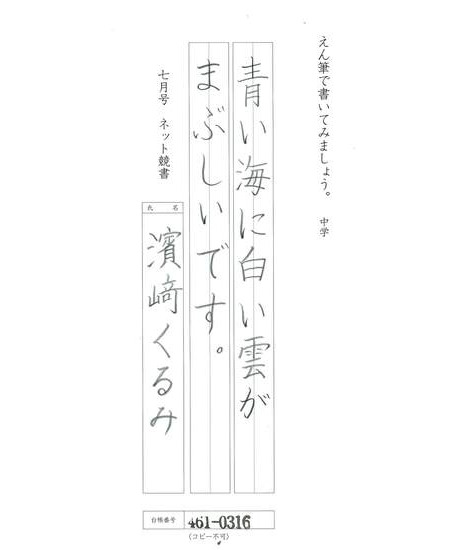 えん筆で書いてみましょう。 中学
青い海に白い雲が
まぶしいです。
七月号 ネット競書
氏名
濱﨑くるみ
台帳番号 461-0316
(コピー不可)